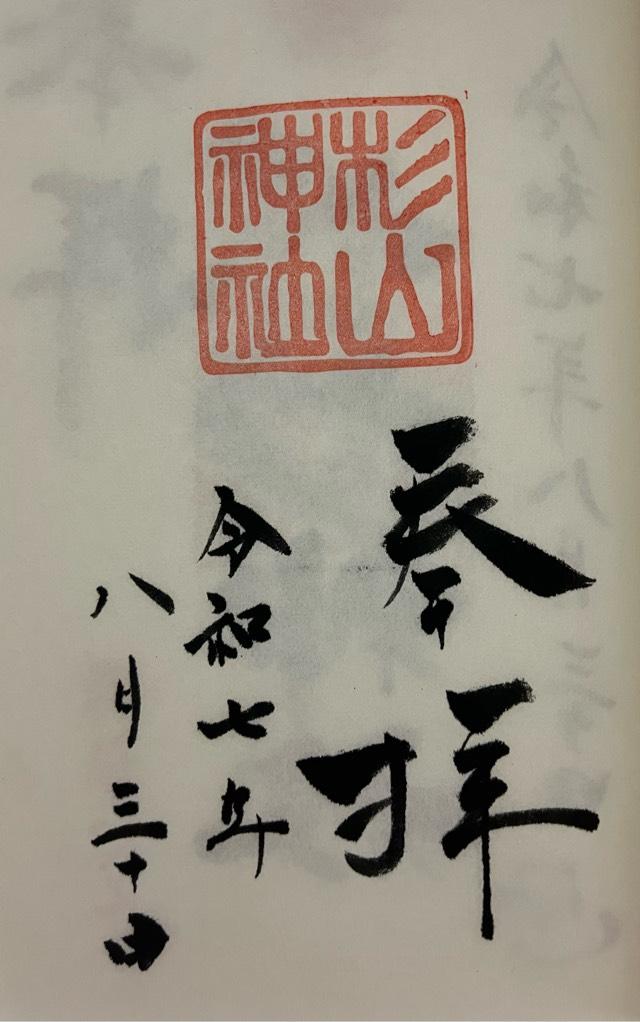 杉山
神社
奉拝
令和七年
八月三十日